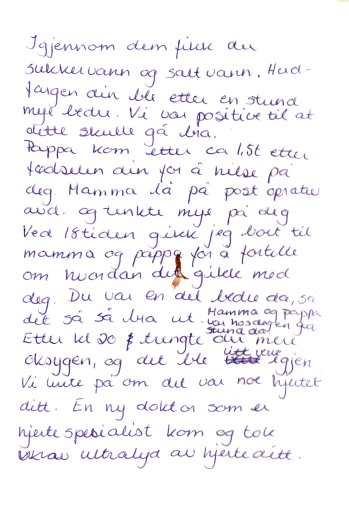 Igjennom dem fikk du
sukkervann og saltvann. Hud-
fargen din ble etter en stund
mye bedre. Vi var positive til at
dette skulle gå bra.
Pappa kom etter ca 1,5t etter
fødselen din for å hilse på
deg. Mamma lå på post operativ
avd. og tenkte mye på deg
Ved 18 tiden gikk jeg bort til
mamma og pappa for å fortelle
om hvordan det gikk med
deg. Du var en del bedre da, så
det så så bra ut. Mamma og pappa
var hos deg en
stund da
Etter kl 20 trengte du mere
oksygen, og det ble litt mye igjen
Vi lurte på om det var noe hjertet
ditt. En ny doktor som er
hjertespesialist kom og tok
ultralyd av hjerte ditt.